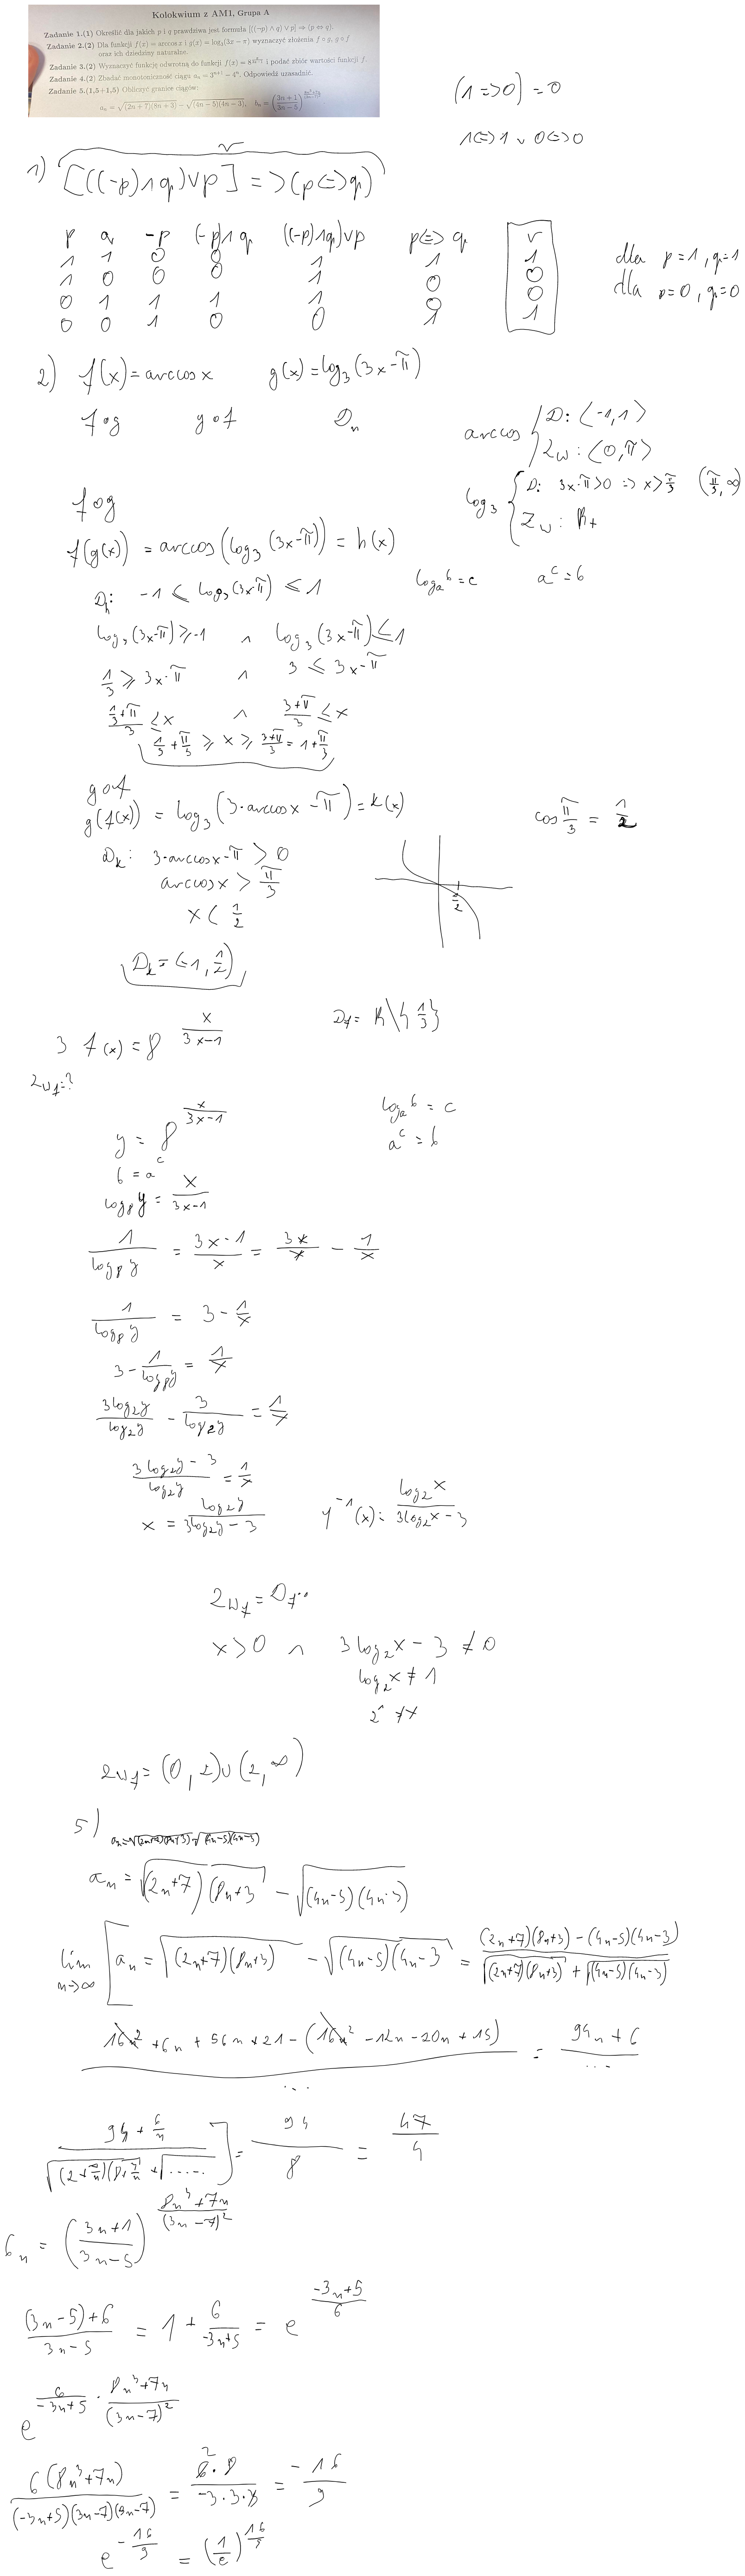 Kolokwium z AM1, Grupa A
Zadanie 1.(1) Określić dla jakich p i q prawdziwa jest formuła [((¬p) ∧ q) ∨ p] ⇒ (p ⇔ q).
Zadanie 2.(2) Dla funkcji f(x) = arccos x i g(x) = log₃(3x − π) wyznaczyć złożenia f ∘ g, g ∘ f
oraz ich dziedziny naturalne.
Zadanie 3.(2) Wyznaczyć funkcję odwrotną do funkcji f(x) = 8^(x/(3x−1)) i podać zbiór wartości funkcji f.
Zadanie 4.(2) Zbadać monotoniczność ciągu aₙ = 3ⁿ⁺¹ − 4ⁿ. Odpowiedź uzasadnić.
Zadanie 5.(1,5+1,5) Obliczyć granice ciągów:
aₙ = √((2n + 7)(8n + 3)) − √((4n − 5)(4n − 3)), bₙ = ((3n + 1)/(3n − 5))
(1 => 0) = 0
1 <=> 1 ∨ 0 <=> 0
v
1) [((-p) ∧ q) ∨ p] => (p <=> q)
p q -p (-p) ∧ q ((-p) ∧ q) ∨ p p <=> q v
1 1 0 0 1 1 1 dla p=1, q=1
1 0 0 0 1 0 0 dla p=0, q=0
0 1 1 1 1 0 0
0 0 1 0 0 1 1
2) f(x) = arccos x g(x) = log₃(3x-π)
f∘g g∘f Dₙ
arccos D: <-1,1>
Zw: <0,π>
log₃ D: 3x-π>0 => x>π/3 (π/3, ∞)
Zw: R+
f∘g
f(g(x)) = arccos(log₃(3x-π)) = h(x)
Dh: -1 ≤ log₃(3x-π) ≤ 1 logₐb = c aᶜ = b
log₃(3x-π) ≥ -1 ∧ log₃(3x-π) ≤ 1
1/3 ≥ 3x-π ∧ 3 ≤ 3x-π
(1/3+π)/3 ≤ x ∧ (3+π)/3 ≤ x
1/3 + π/3 ≥ x ≥ (3+π)/3 = 1+π/3
g∘f
g(f(x)) = log₃(3·arccosx - π) = k(x) cos π/3 = 1/2
Dk: 3·arccosx - π > 0
arccosx > π/3
x < 1/2
Dk = <-1, 1/2)
3 f(x) = 8^(x/(3x-1)) Df = R\{1/3}
Zwf=?
y = 8^(x/(3x-1)) logₐb = c
b = aᶜ aᶜ = b
log₈y = x/(3x-1)
1/log₈y = (3x-1)/x = 3x/x - 1/x
1/log₈y = 3 - 1/x
3 - 1/log₈y = 1/x
3log₂y/log₂y - 3/log₂y = 1/x
(3log₂y - 3)/log₂y = 1/x
x = log₂y/(3log₂y - 3) y⁻¹(x) = log₂x/(3log₂x - 3)
Zwf = Df⁻¹
x > 0 ∧ 3log₂x - 3 ≠ 0
log₂x ≠ 1
2¹ ≠ x
Zwf = (0,2)∪(2,∞)
5)
aₙ = √((2n+7)(8n+3)) - √((4n-5)(4n-3))
aₙ = √((2n+7)(8n+3)) - √((4n-5)(4n-3))
lim n→∞ [aₙ = √((2n+7)(8n+3)) - √((4n-5)(4n-3)) = ((2n+7)(8n+3) - (4n-5)(4n-3))/(√((2n+7)(8n+3)) + √((4n-5)(4n-3)))
(16n² + 6n + 56n + 21 - (16n² - 12n - 20n + 15))/... = (94n + 6)/...
(94 + 6/n)/(√((2+7/n)(8+3/n)) + √.....)] = 94/8 = 47/4
bₙ = ((3n+1)/(3n-5))^((8n³+7n)/(3n-7)²)
((3n-5)+6)/(3n-5) = 1 + 6/(-3n+5) = e^((-3n+5)/6)
e^(6/(-3n+5) · (8n³+7n)/(3n-7)²)
6(8n³+7n)/((-3n+5)(3n-7)(3n-7)) = 2 6·8/(-3·3·3) = -16/9
e^(-16/9) = (1/e)^(16/9)